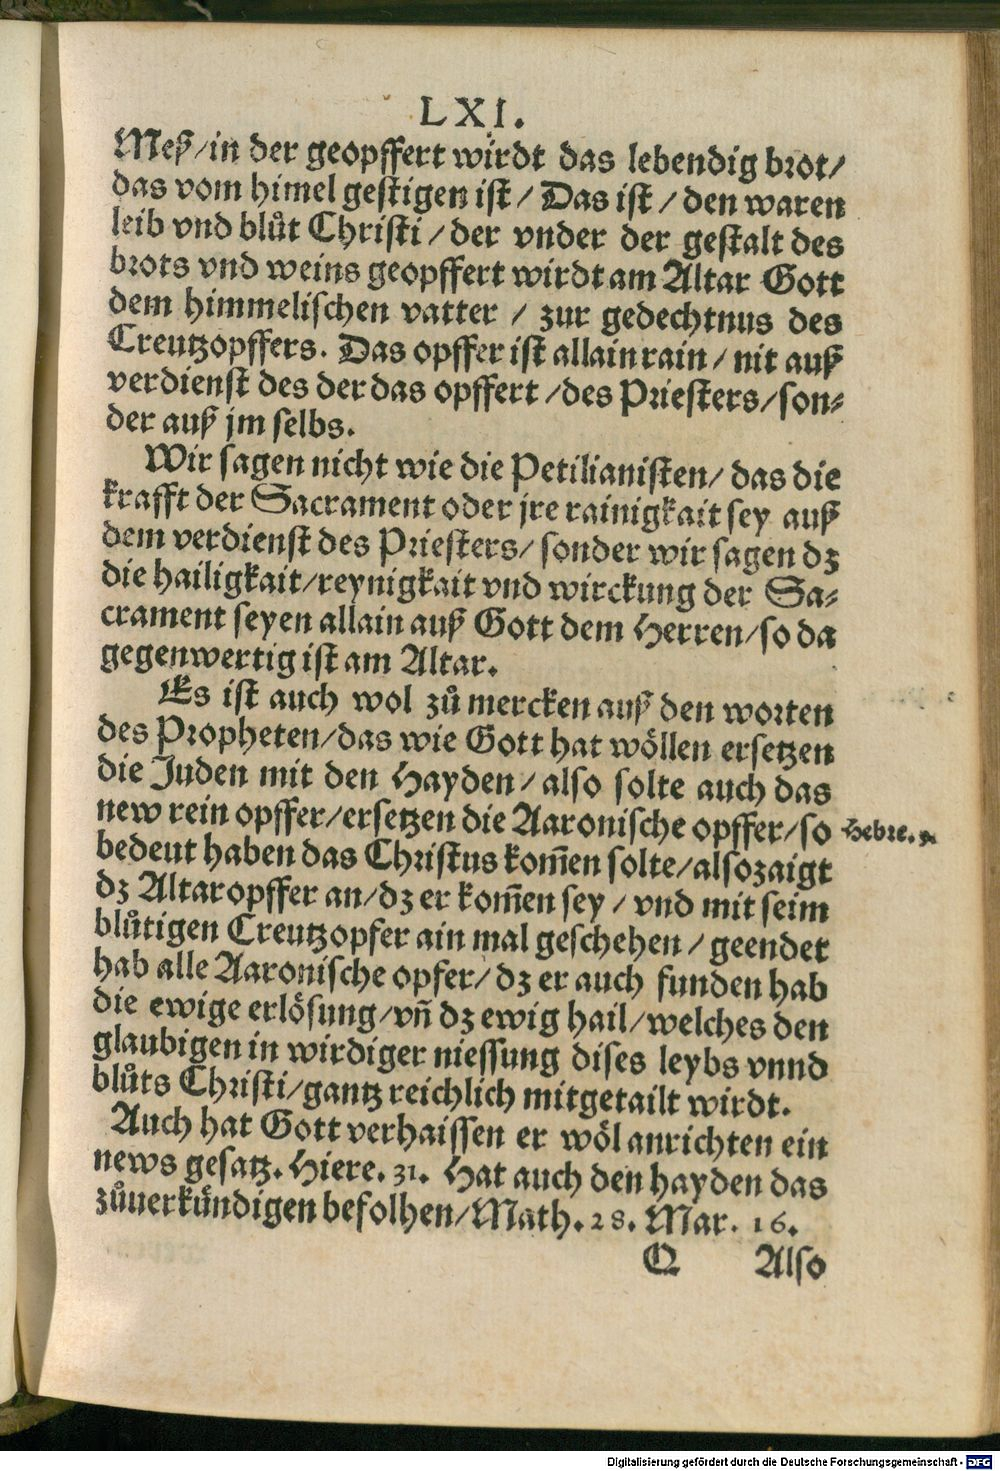 LXI.
Meß/in der geopffert wirdt das lebendig brot/
das vom himel gestigen ist/ Das ist/ den waren
leib vnd blůt Christi/ der vnder der gestalt des
brots vnd weins geopffert wirdt am Altar Gott
dem himmelischen vatter/ zur gedechtnus des
Creutzopffers. Das opffer ist allain rain/ nit auß
verdienst des der das opffert/des Priesters/son-
der auß jm selbs.
Wir sagen nicht wie die Petilianisten/ das die
krafft der Sacrament oder jre rainigkait sey auß
dem verdienst des Priesters/ sonder wir sagen dz
die hailigkait/reynigkait vnd wirckung der Sa-
crament seyen allain auß Gott dem Herren/so da
gegenwertig ist am Altar.
Es ist auch wol zů mercken auß den worten
des Propheten/das wie Gott hat wöllen ersetzen
die Juden mit den Hayden/ also solte auch das
new rein opffer/ersetzen die Aaronische opffer/so
Hebre. 9.
bedeut haben das Christus kom̄en solte/also zaigt
dz Altaropffer an/dz er kom̄en sey/ vnd mit seim
blůtigen Creutzopfer ain mal geschehen/ geendet
hab alle Aaronische opfer/ dz er auch funden hab
die ewige erlösung/vn̄ dz ewig hail/welches den
glaubigen in wirdiger niessung dises leybs vnnd
blůts Christi/gantz reichlich mitgetailt wirdt.
Auch hat Gott verhaissen er wöl anrichten ein
news gesatz. Hiere. 31. Hat auch den hayden das
zůuerkündigen befolhen/Math. 28. Mar. 16.
Q Also
Digitalisierung gefördert durch die Deutsche Forschungsgemeinschaft - DFG